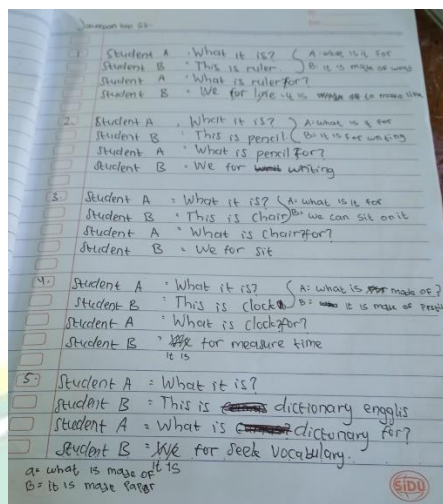 Jawaban
1. Student A : What it is? A: what is it for
Student B : This is ruler B: it is made of
Student A : What is ruler for?
Student B : We for line it is to make line
2. Student A : What it is? A: what is it for
Student B : This is pencil B: it is for writing
Student A : What is pencil for?
Student B : We for writing
3. Student A : What it is? A: what is it for
Student B : This is chair B: we can sit on it
Student A : What is chair for?
Student B : We for sit
4. Student A : What it is? A: what is made of?
Student B : This is clock B: it is made of
Student A : What is clock for?
Student B : for measure time
it is
5. Student A = What it is?
Student B = This is dictionary engglis
Student A = What is dictonary for?
Student B = for seek vocabulary.
it is
a= what is made of
B= it is made paper
SiDU